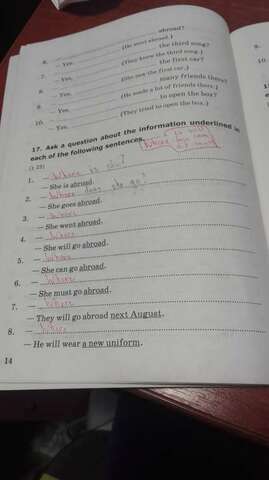 abroad?
6. — Yes. (He went abroad.)
the third song?
7. — Yes. (They knew the third song.)
the first car?
8. — Yes. (the first car.)
many friends there?
9. — Yes. (He made a lot of friends there.)
to open the box?
10. — Yes. (They tried to open the box.)
17. Ask a question about the information underlined in
each of the following sentences.
1. — Where is she?
— She is abroad.
2. — Where does she go?
— She goes abroad.
3. — Where
— She went abroad.
4. — Where
— She will go abroad.
5. — Where
— She can go abroad.
6. — Where
— She must go abroad.
7. — Where
— They will go abroad next August.
8. — Where
— He will wear a new uniform.
14
9.
10.